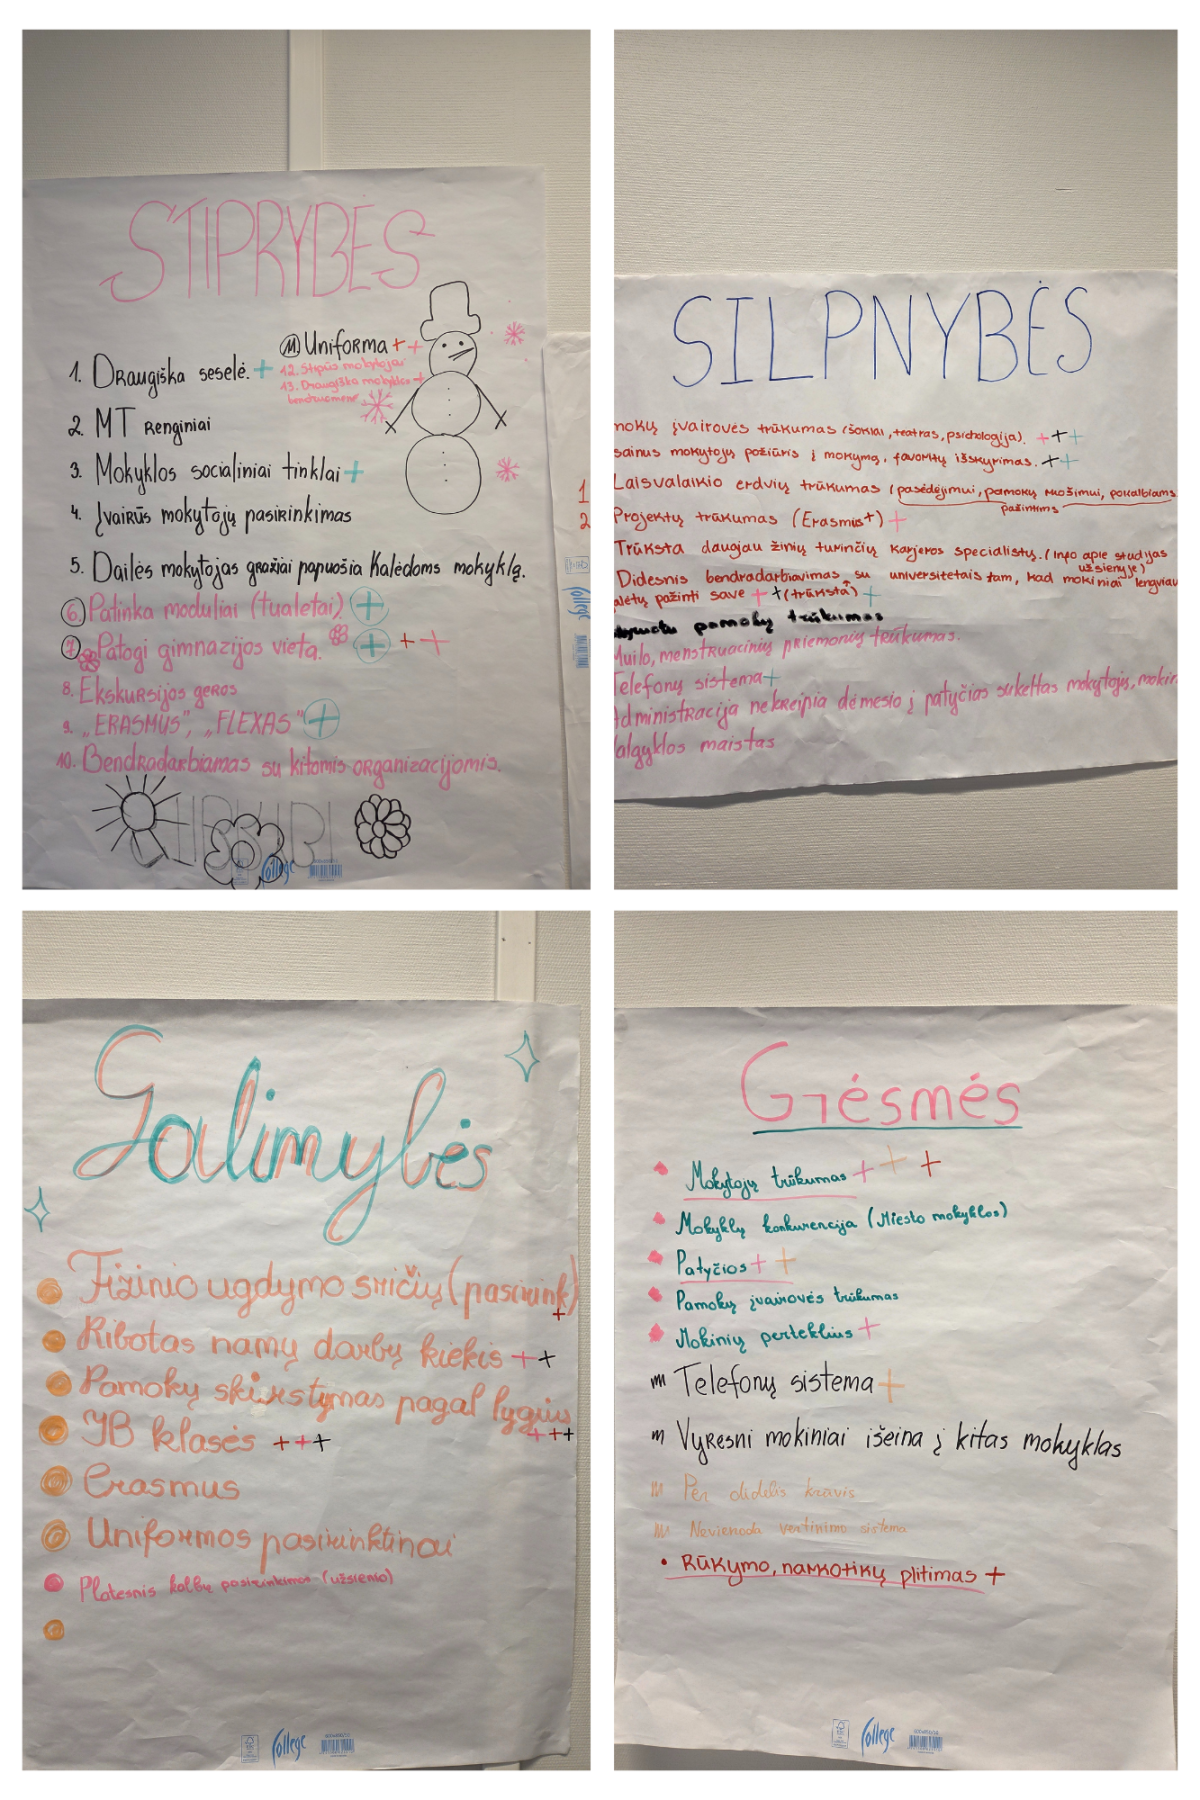 STIPRYBĖS
11 Uniforma + +
12. Stiprūs mokytojai
13. Draugiška mokyklos +
bendruomenė
1. Draugiška seselė. +
2. MT renginiai
3. Mokyklos socialiniai tinklai +
4. Įvairūs mokytojų pasirinkimas
5. Dailės mokytojas gražiai papuošia Kalėdoms mokyklą.
6. Patinka moduliai (tualetai) +
7. Patogi gimnazijos vieta. + + +
8. Ekskursijos geros
9. „ERASMUS", „FLEXAS" +
10. Bendradarbiamas su kitomis organizacijomis.
College
1
2
College
SILPNYBĖS
mokų įvairovės trūkumas (šokiai, teatras, psichologija). + + +
sainus mokytojų požiūris į mokymą, favoritų išskyrimas. + +
Laisvalaikio erdvių trūkumas (pasėdėjimui, pamokų ruošimui, pokalbiams
pažintims
Projektų trūkumas (Erasmus+) +
Trūksta daugiau žinių turinčių karjeros specialistų. (Info apie studijas
užsienyje)
Didesnis bendradarbiavimas su universitetais tam, kad mokiniai lengviau
alėtų pažinti save + + (trūksta) +
pamokų trūkumas
Muilo, menstruacinių priemonių trūkumas.
Telefonų sistema +
Administracija nekreipia dėmesio į patyčias sukeltas mokytojų, mokin
algyklos maistas
Galimybės
Fizinio ugdymo sričių (pasirink)
+
Ribotas namų darbų kiekis + +
Pamokų skirstymas pagal lygius
+ + +
IB klasės + + +
Erasmus
Uniformos pasirinktinai
Platesnis kalbų pasirinkimas (užsienio)
College
Grėsmės
Mokytojų trūkumas + + +
Mokyklų konkurencija (Miesto mokyklos)
Patyčios + +
Pamokų įvairovės trūkumas
Mokinių perteklius +
Telefonų sistema +
Vyresni mokiniai išeina į kitas mokyklas
Per didelis kravis
Nevienoda vertinimo sistema
• Rūkymo, narkotikų plitimas +
College